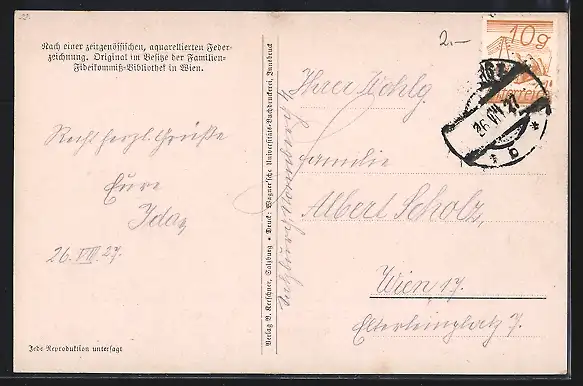 Nach einer zeitgenössischen, aquarellierten Feder-
zeichnung. Original im Besitze der Familien-
Fideikommiß-Bibliothek in Wien.
Recht herzl. Grüße
Eure
Ida
26. VIII. 27.
Jede Reproduktion untersagt
Verlag B. Kerschner, Salzburg • Druck: Wagner'sche Universitäts-Buchdruckerei, Innsbruck
2.–
10g
26.VIII.27
* b *
Ihrer Hochlg.
Familie
Albert Scholz,
Wien 17.
Elterleinplatz 7.